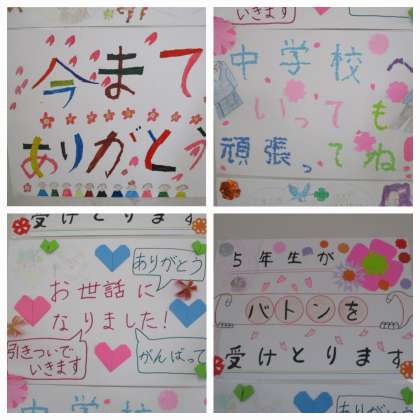 今まて
ありがとう
いきます
中学校へ
いっても
頑張ってね
受けとります
ありがとう
お世話に
なりました！
引きついで
いきます
がんばって
中学校
5年生が
バトンを
受けとります
ありがとう